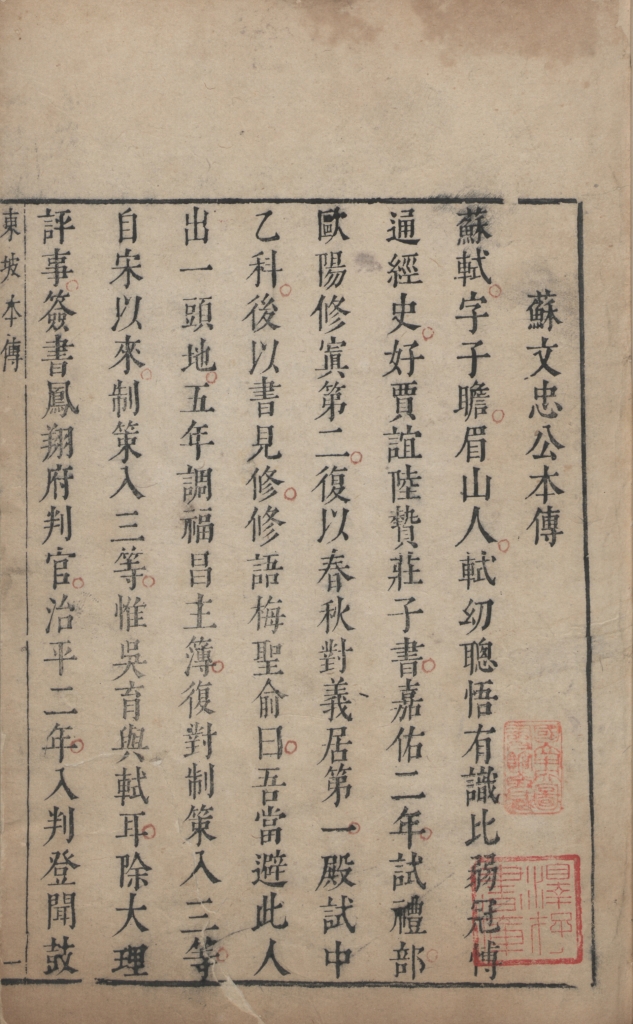 蘇文忠公本傳
蘇軾字子瞻眉山人軾幼聰悟有識比弱冠博
通經史好賈誼陸贄莊子書嘉佑二年試禮部
歐陽修寘第二復以春秋對義居第一殿試中
乙科後以書見修修語梅聖俞曰吾當避此人
出一頭地五年調福昌主簿復對制策入三等
自宋以來制策入三等惟吳育與軾耳除大理
評事簽書鳳翔府判官治平二年入判登聞鼓
東坡本傳
一